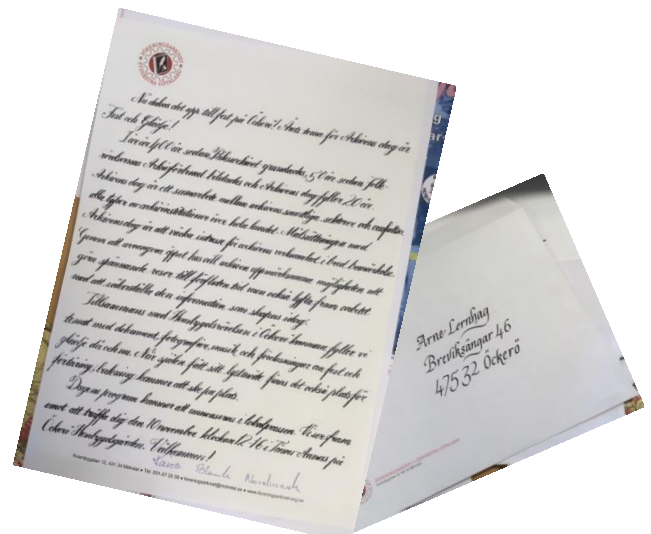 Nu dukas det upp till fest på Öckerö! Årets tema för Arkivens dag är
Fest och Glädje!
I år är 400 år sedan Riksarkivet grundades, 50 år sedan folk-
rörelsernas Arkivförbund bildades och Arkivens dag fyller 20 år.
Arkivens dag är ett samarbete mellan arkivens samtliga sektorer och omfattar
alla typer av arkivinstitutioner över hela landet. Målsättningen med
Arkivens dag är att väcka intresse för arkivens verksamhet i bred bemärkelse.
Genom att arrangera öppet hus vill arkiven uppmärksamma möjligheten att
göra spännande resor till förfluten tid men också lyfta fram arbetet
med att säkerställa den information som skapas idag.
Tillsammans med Hembygdsrörelsen i Öckerö kommun fyller vi
temat med dokument, fotografier, musik och föreläsningar om fest och
glädje då och nu. När själen fått sitt, lystmäte finns det också plats för
förtäring, beskåning kommer att ske på plats.
Dagens program kommer att annonseras i lokalpressen. Vi ser fram
emot att träffa dig den 10 november klockan 12-16 i Annas på
Öckerö Hembygdsgården. Välkommen!
Arne Lernhag
Breviksängar 46
475 32 Öckerö